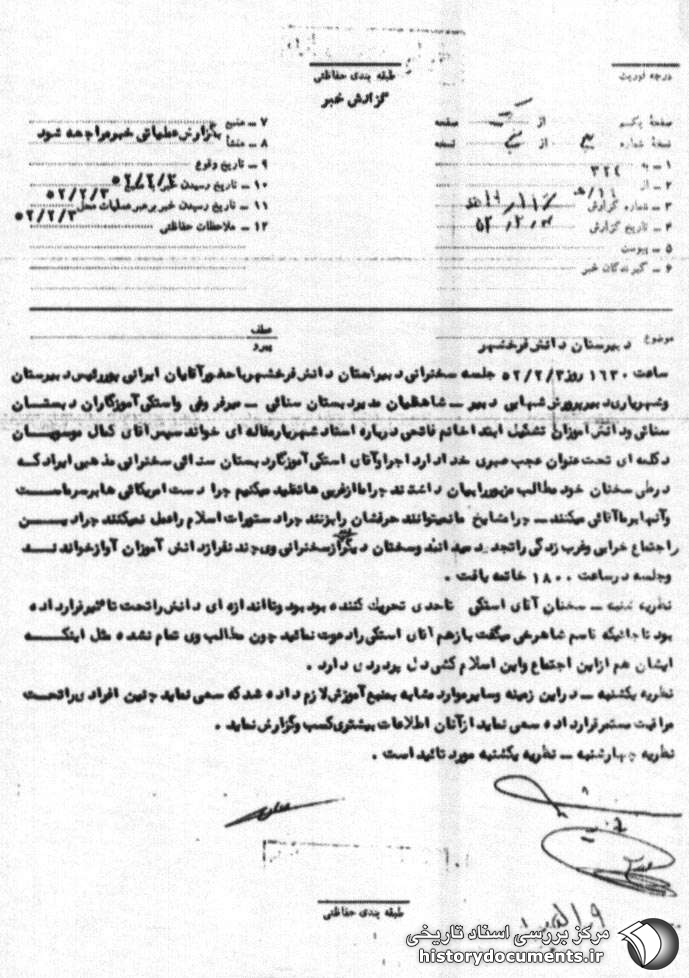 درجه فوریت
طبقه بندی حفاظتی
گزارش خبر
صفحه یکم از صفحه
نسخه شماره از نسخه
۱ - به ۳۲۴
۲ - از ۱۱/ﻫ
۳ - شماره گزارش
۴ - تاریخ گزارش ۵۲/۲/
۵ - پیوست
۶ - گیرندگان خبر
۷ - منبع بگزارش عملیاتی خبر مراجعه شود
۸ - منشأ
۹ - تاریخ وقوع
۱۰ - تاریخ رسیدن خبر ۵۲/۲/۳
۱۱ - تاریخ رسیدن خبر برهبر عملیات محل ۵۲/۲/۳
۱۲ - ملاحظات حفاظتی ۵۲/۲/۳
موضوع دبیرستان دانش فرخشهر
عطف
پیرو
ساعت ۱۶۳۰ روز ۵۲/۲/۳ جلسه سخنرانی دبیرستان دانش فرخشهر با حضور آقایان ایرانی پور رئیس دبیرستان
و شهریاری دبیر پرورش شهابی دبیر - شاهنظریان مدیر دبستان سنائی - میرفروغی و استکی آموزگاران دبستان
سنائی و دانش آموزان تشکیل ابتدا خانم فاتحی درباره استاد شهریار مقاله ای خواند سپس آقای کمال موسویان
دکلمه ای تحت عنوان عجب صبری خدا دارد اجرا و آقای استکی آموزگار دبستان سنائی سخنرانی مذهبی ایراد کـه
در طی سخنان خود مطالب مزبور را بیان داشتند چرا ما از غربی ها تقلید میکنیم چرا دست امریکائی ها بر سر ماست
و آنها بر ما آقائی میکنند - چرا مشایخ ما نمیتوانند حرفشان را بزنند چرا دستورات اسلام را عمل نمیکنند چرا دیــن
را اجتماع خرابی و غرب زدگی را تجدد میدانند و سخنان دیگر از سخنرانی وی چند نفر از دانش آموزان آواز خواندنـد
و جلسه در ساعت ۱۸۰۰ خاتمه یافت .
نظریه شنبه - سخنان آقای استکی تا حدی تحریک کننده بود بود و تا اندازه ای دانش را تحت تاثیر قرار داده
بود تا جائیکه قاسم شاهرخی میگفت باز هم آقای استکی را دعوت نمائید چون مطالب وی تمام نشده مثل اینکـه
ایشان هم از این اجتماع و این اسلام کشی دل پر دردی دارد .
نظریه یکشنبه - در این زمینه و سایر موارد مشابه بمنبع آموزش لازم داده شد که سعی نماید چنین افرادی را تحت
مراقبت مستمر قرار داده سعی نماید از آنان اطلاعات بیشتری کسب و گزارش نماید .
نظریه چهارشنبه - نظریه یکشنبه مورد تائید است .
طبقه بندی حفاظتی
مرکز بررسی اسناد تاریخی
historydocuments.ir